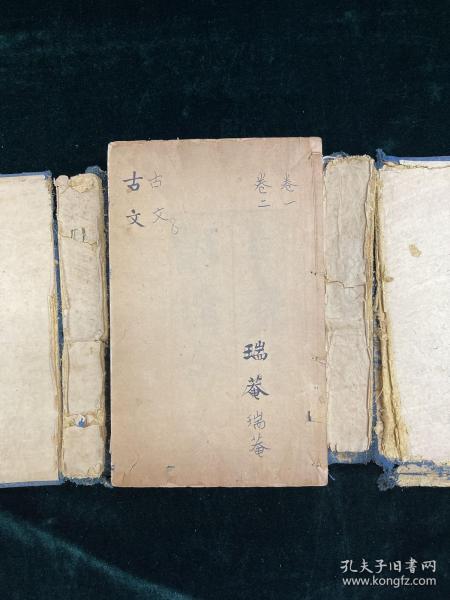 卷一
卷二
古文
古文
瑞菴
瑞菴
孔夫子旧书网
www.kongfz.com